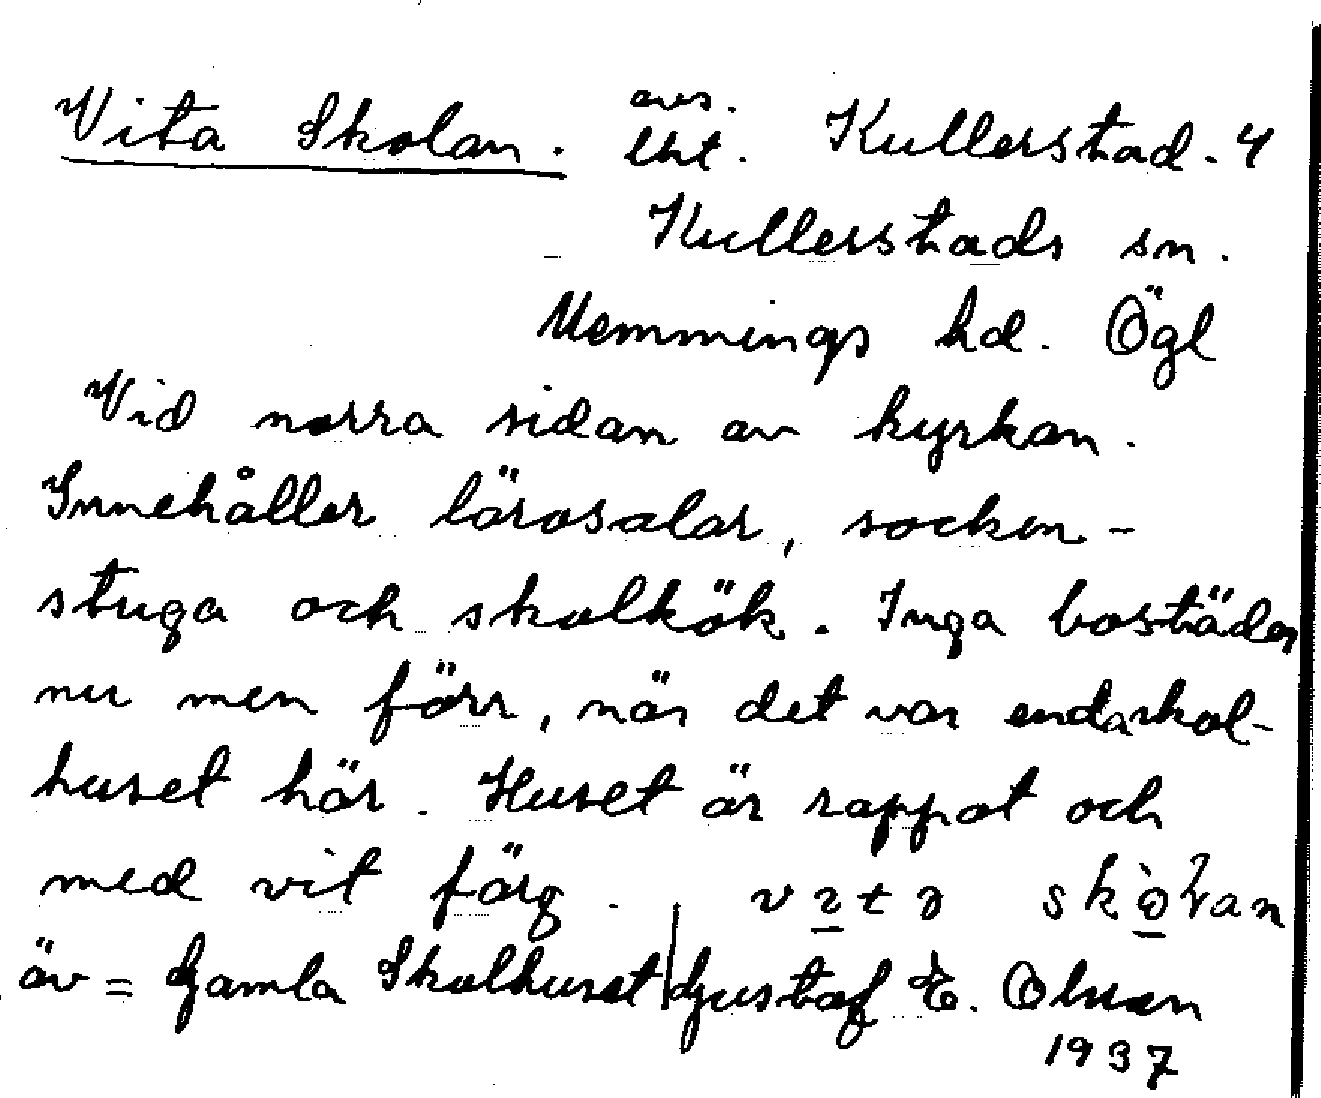 Vita Skolan. avs. lht. Kullerstad. 4
Kullerstads sn.
Memmings hd. Ögl
Vid norra sidan av kyrkan.
Innehåller lärosalar, socken-
stuga och skolkök. Inga bostäder
nu men förr, när det var enda skol-
huset här. Huset är rappat och
med vit färg.
äv = Gamla Skolhuset | Gustaf E. Olsson
1937